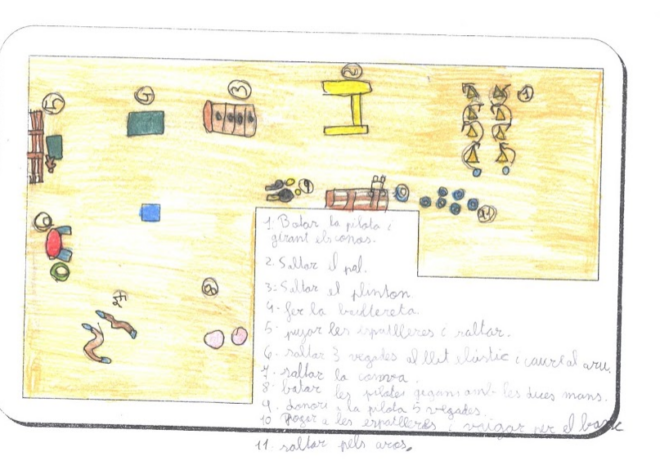 1. Botar la pilota i
girant els conos.
2. Saltar el pal.
3. Saltar el plinton
4. fer la boultereta.
5. pujar les espatlleres i saltar.
6. saltar 3 vegades al llit elàstic i caure al aru.
7. saltar la
8. botar les pilotes amb les dues mans.
9. la pilota 5 vegades.
10 a les espatlleres i per el banc
11. saltar pels aros.
1
2
3
4
5
6
7
8
9
10
11